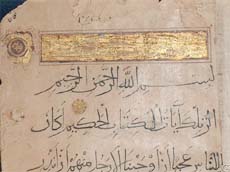 بسم الله الرحمن الرحيم
الر تلك آيات الكتاب الحكيم أكان
للناس عجبا أن أوحينا إلى رجل منهم أن أنذر